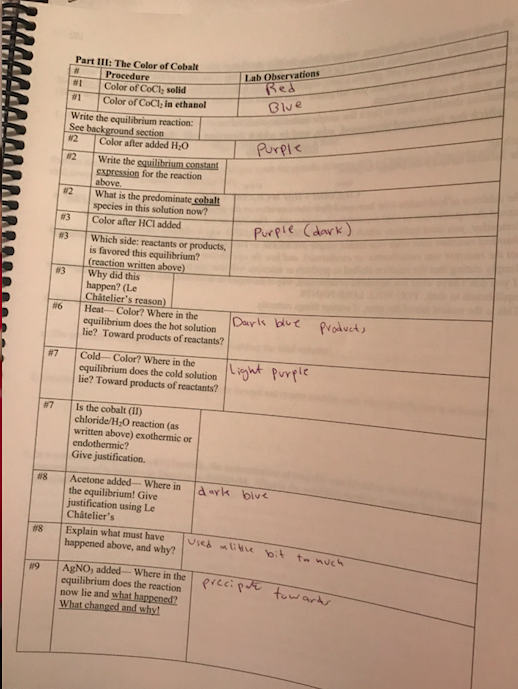 Part III: The Color of Cobalt
# Procedure Lab Observations
#1 Color of CoCl₂ solid Red
#1 Color of CoCl₂ in ethanol Blue
Write the equilibrium reaction:
See background section
#2 Color after added H₂O Purple
#2 Write the equilibrium constant
expression for the reaction
above.
#2 What is the predominate cobalt
species in this solution now?
#3 Color after HCl added Purple (dark)
#3 Which side: reactants or products,
is favored this equilibrium?
(reaction written above)
#3 Why did this
happen? (Le
Châtelier's reason)
#6 Heat— Color? Where in the
equilibrium does the hot solution
lie? Toward products of reactants?
Dark blue products
#7 Cold— Color? Where in the
equilibrium does the cold solution
lie? Toward products of reactants?
Light purple
#7 Is the cobalt (II)
chloride/H₂O reaction (as
written above) exothermic or
endothermic?
Give justification.
#8 Acetone added— Where in
the equilibrium! Give
justification using Le
Châtelier's
dark blue
#8 Explain what must have
happened above, and why?
Used a little bit to much
#9 AgNO₃ added— Where in the
equilibrium does the reaction
now lie and what happened?
What changed and why!
precipate towards